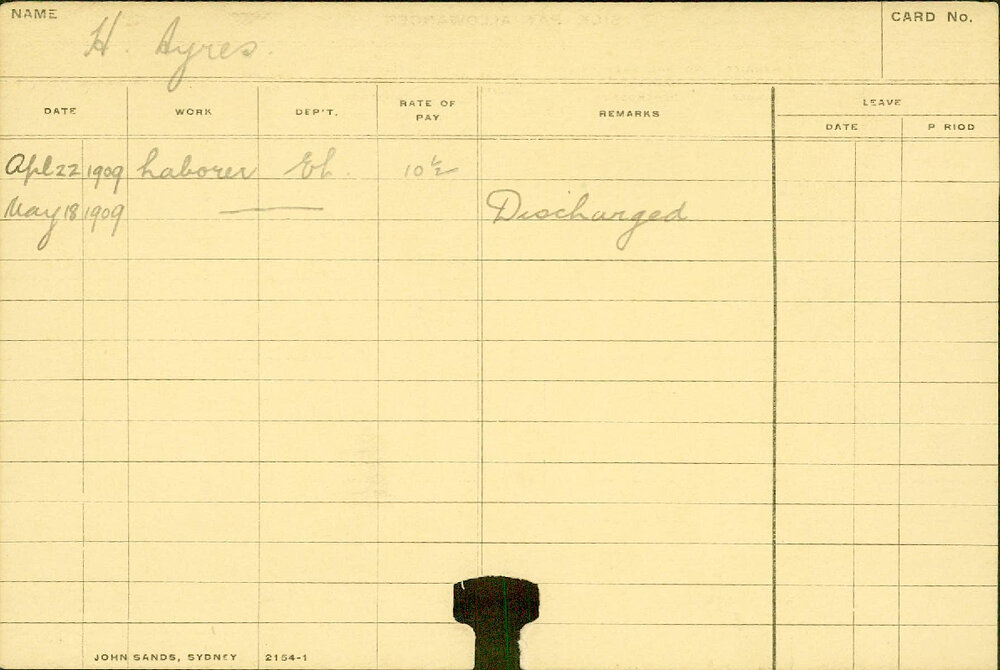 NAME H. Ayres. CARD No.
DATE WORK DEP'T. RATE OF PAY REMARKS LEAVE
DATE P RIOD
Apl 22 1909 Laborer 10½
May 18 1909 Discharged
JOHN SANDS, SYDNEY 2154-1